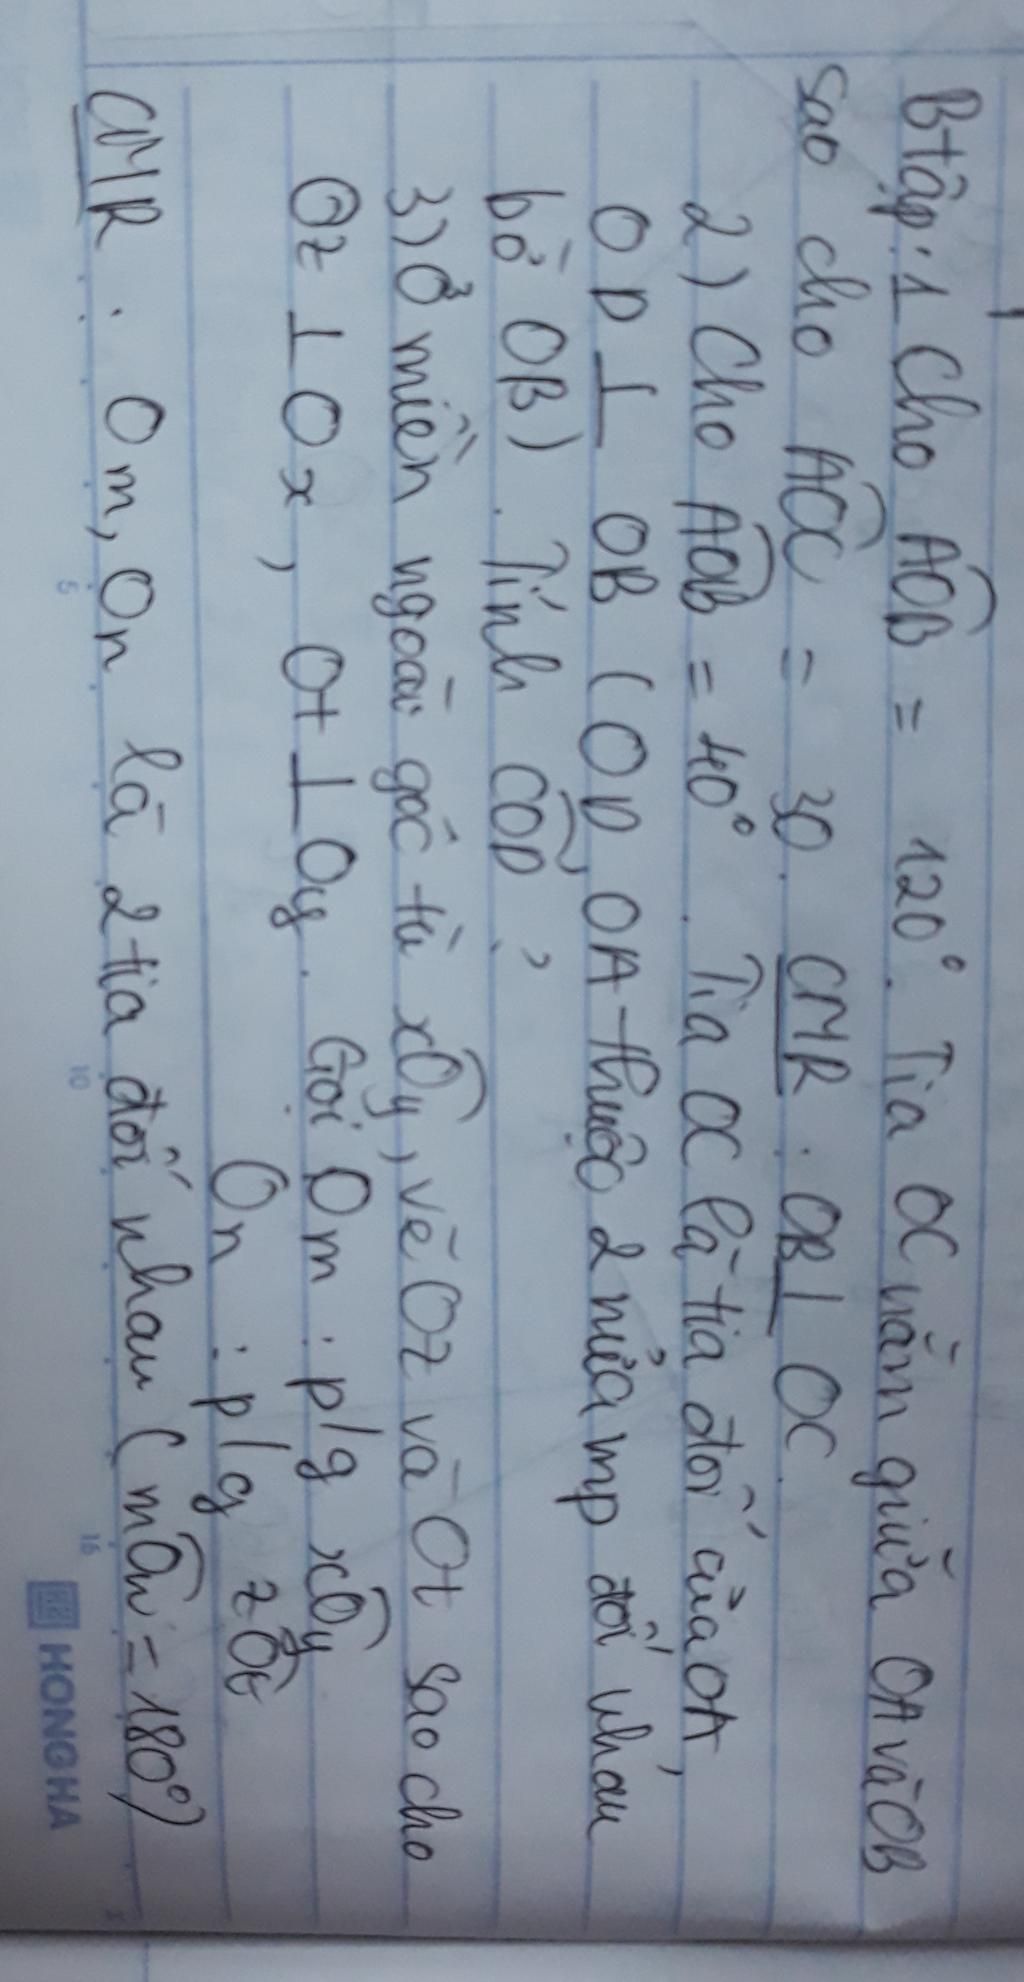 Btập: 1 Cho AÔB = 120°. Tia OC nằm giữa OA và OB
sao cho AÔC = 30. CMR: OB ⊥ OC.
2) Cho AÔB = 40°. Tia OC là tia đối của OA,
OD ⊥ OB (OD, OA thuộc 2 nửa mp đối nhau
bờ OB). Tính CÔD?
3) Ở miền ngoài góc tù xÔy, vẽ Oz và Ot sao cho
Oz ⊥ Ox, Ot ⊥ Oy. Gọi Om: p/g xÔy
On: p/g zÔt
CMR: Om, On là 2 tia đối nhau (mÔn = 180°)
5 10 15
HONG HA